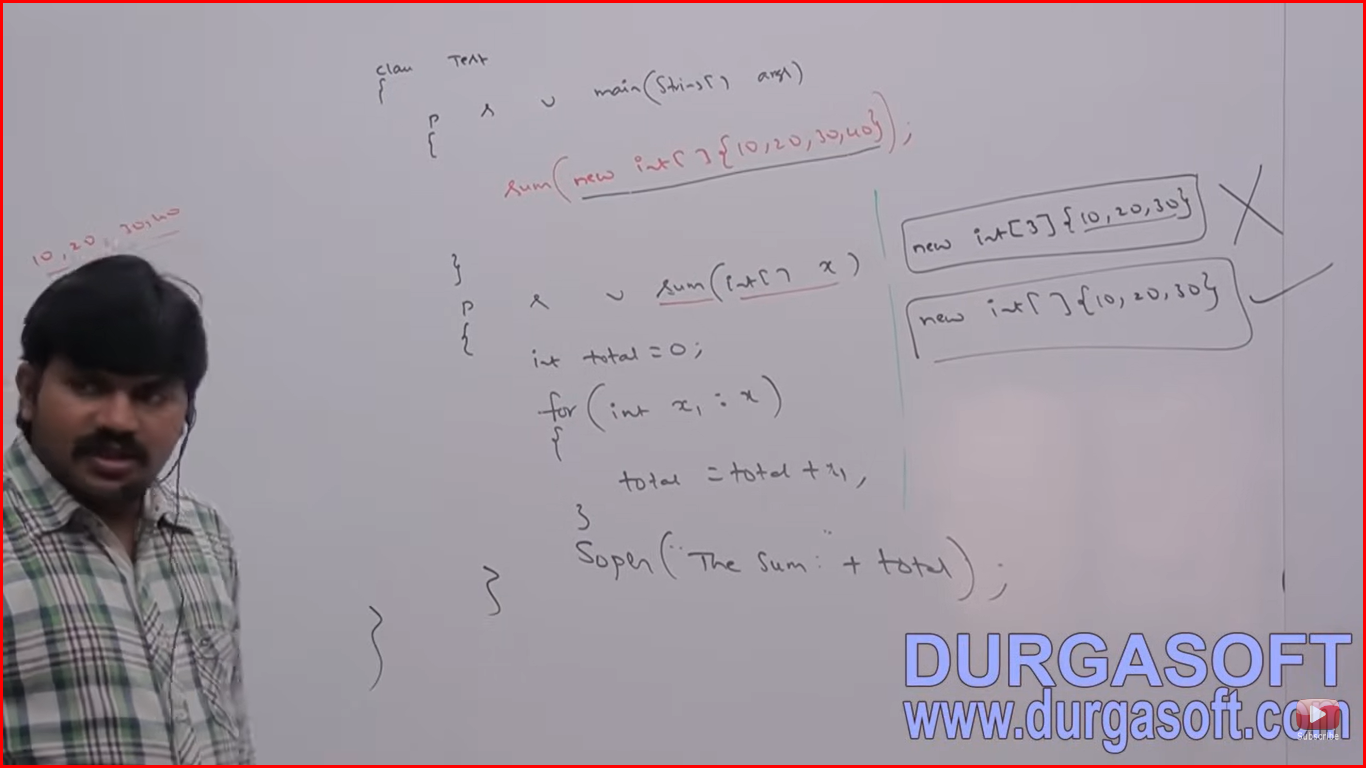 class Test
{
p s v main(String[] args)
{
sum(new int[]{10,20,30,40});
}
p s v sum(int[] x)
{
int total=0;
for(int x1 : x)
{
total = total + x1;
}
Sopln("The Sum:" + total);
}
}
10,20,30,40
new int[3]{10,20,30}
new int[]{10,20,30}
DURGASOFT
www.durgasoft.com
Subscribe